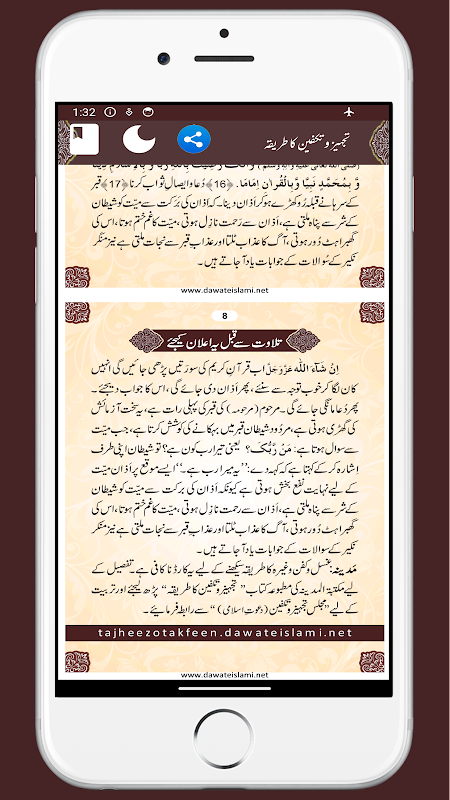 1:32
تجہیز و تکفین کا طریقہ
وَّ بِمُحَمَّدٍ نَبِيًّا وَّ بِالْقُرْاٰنِ اِمَامًا. ﴿16﴾ دُعا و ایصالِ ثواب کرنا ﴿17﴾ قبر
کے سرہانے قبلہ رُو کھڑے ہو کر اَذان دینا۔ کہ اذان کی بَرَکت سے میّت کو شیطان
کے شر سے پناہ ملتی ہے، اَذان سے رَحمت نازِل ہوتی، میّت کا غم ختم ہوتا، اس کی
گھبراہٹ دُور ہوتی، آگ کا عذاب ٹلتا اور عذابِ قبر سے نجات ملتی ہے نیز منکَر
نکیر کے سُوالات کے جوابات یاد آجاتے ہیں۔
www.dawateislami.net
8
تلاوت سے قبل یہ اعلان کیجئے
اِنْ شَآءَ اللّٰه عَزَّوَجَلَّ اب قرآنِ کریم کی سورَتیں پڑھی جائیں گی انہیں
کان لگا کر خوب توجہ سے سنئے، پھر اَذان دی جائے گی، اس کا جواب دیجئے۔
پھر دُعا مانگی جائے گی۔ مرحوم (مرحومہ) کی قبر کی پہلی رات ہے، یہ سخت آزمائش
کی گھڑی ہوتی ہے، مردود شیطان قبر میں بہکانے کی کوشش کرتا ہے، جب میّت
سے سوال ہوتا ہے: مَنْ رَّبُّكَ؟ یعنی تیرا رب کون ہے؟ تو شیطان اپنی طرف
اِشارہ کر کے کہتا ہے کہ کہہ دے: ’’یہ میرا رب ہے۔‘‘ ایسے موقع پر اَذان میّت
کے لیے نہایت نفع بخش ہوتی ہے کیونکہ اَذان کی برکت سے میّت کو شیطان کے
شر سے پناہ ملتی ہے، اَذان سے رَحمت نازِل ہوتی، میّت کا غم ختم ہوتا، اس کی
گھبراہٹ دُور ہوتی، آگ کا عذاب ٹلتا اور عذابِ قبر سے نجات ملتی ہے نیز منکَر
نکیر کے سوالات کے جوابات یاد آجاتے ہیں۔
مَدینہ: غسل و کفن وغیرہ کا طریقہ سیکھنے کے لیے یہ کارڈ ناکافی ہے۔ تفصیل کے
لیے مکتبۃ المدینہ کی مطبوعہ کتاب ’’تجہیز و تکفین کا طریقہ‘‘ پڑھ لیجئے اور تربیت
کے لیے ’’مجلس تجہیز و تکفین (دعوتِ اسلامی)‘‘ سے رابطہ فرمائیے۔
tajheezotakfeen.dawateislami.net
www.dawateislami.net